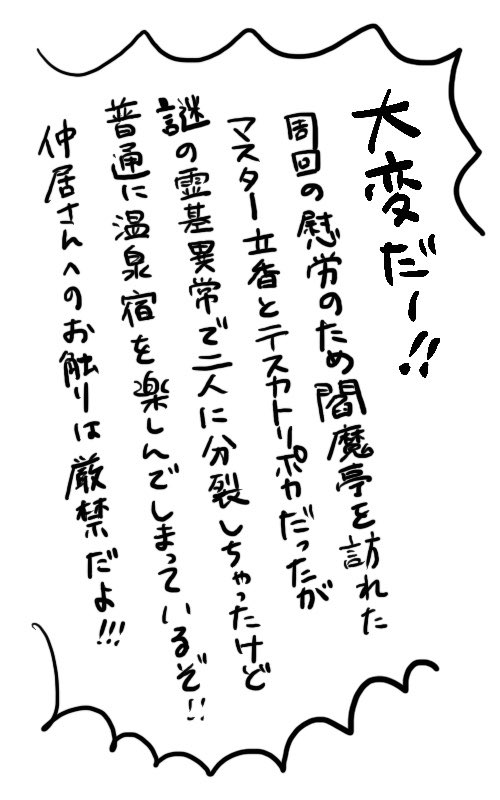 大変だー!!
周回の慰労のため閻魔亭を訪れた
マスター立香とテスカトリポカだったが
謎の霊基異常で二人に分裂しちゃったけど
普通に温泉宿を楽しんでしまっているぞ!!
仲居さんへのお触りは厳禁だよ!!!